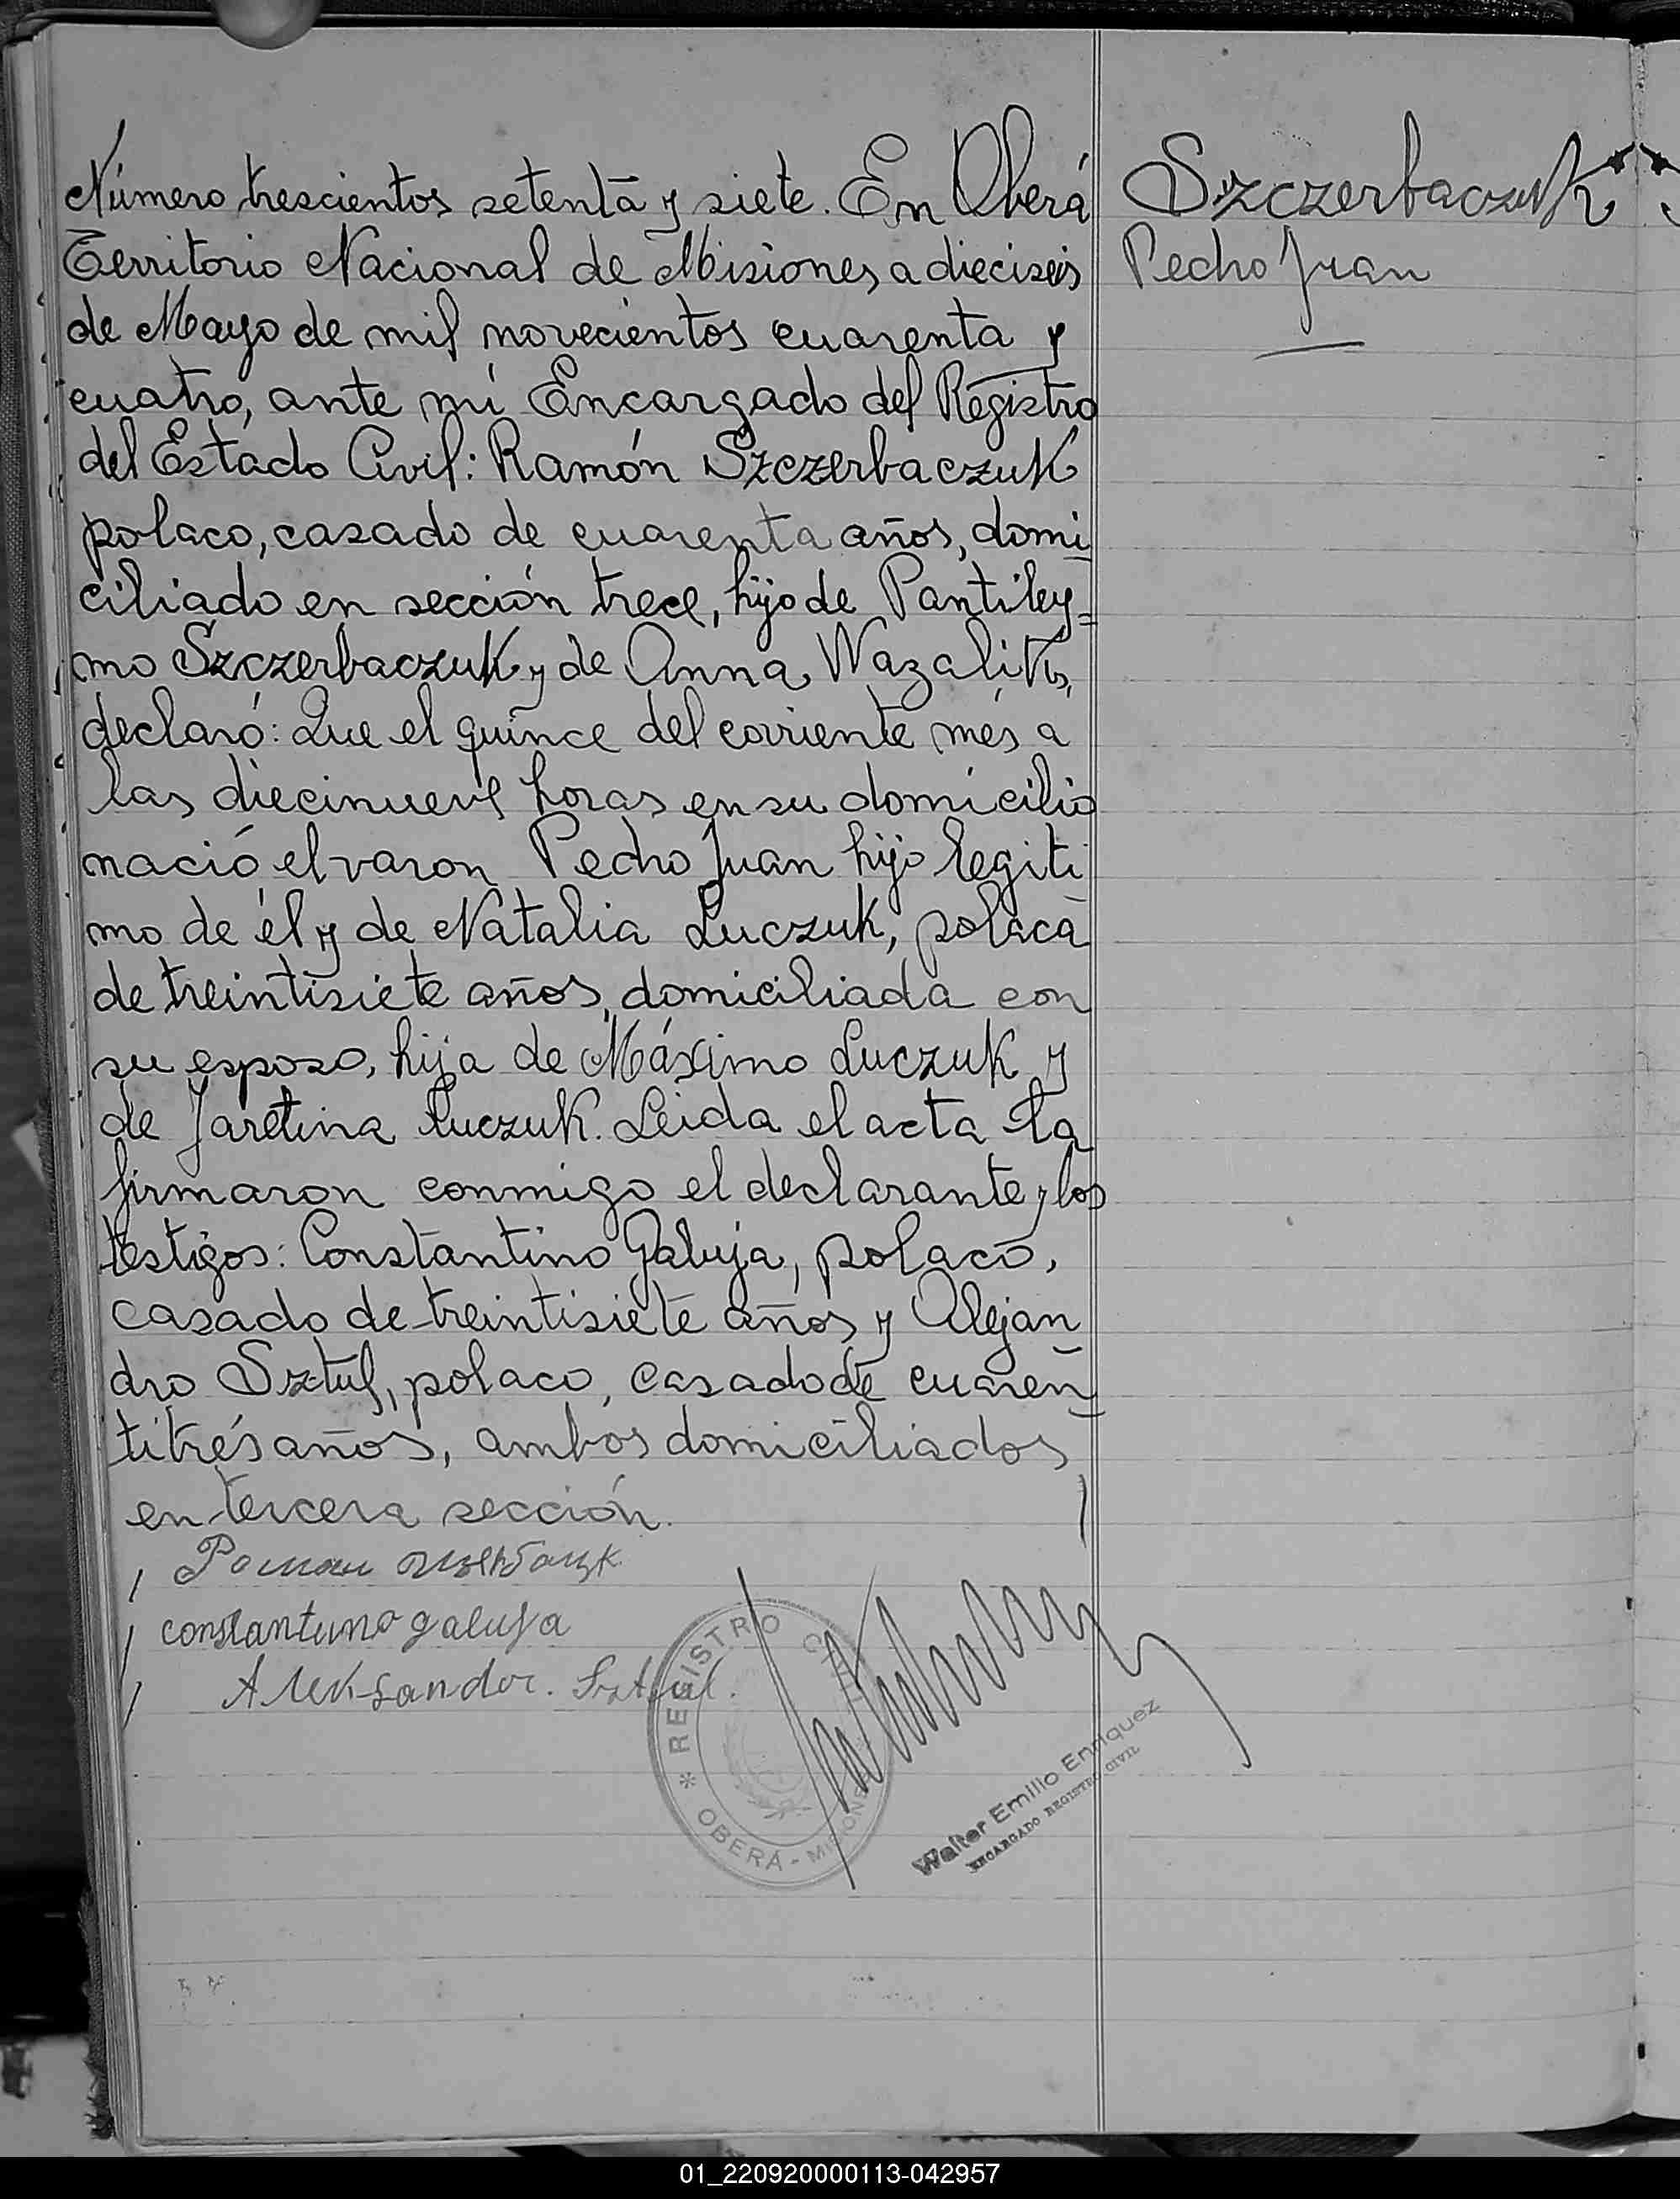 Número trescientos setenta y siete. En Oberá
Territorio Nacional de Misiones, a dieciseis
de Mayo de mil novecientos cuarenta y
cuatro, ante mi Encargado del Registro
del Estado Civil: Ramón Szczerbaczuk
polaco, casado de cuarenta años, domi
ciliado en sección trece, hijo de Pantiley=
mo Szczerbaczuk y de Anna Wazalik,
declaró: Que el quince del corriente més a
las diecinueve horas en su domicilio
nació el varon Pedro Juan hijo legiti
mo de él y de Natalia Luczuk, polaca
de treintisiete años, domiciliada con
su esposo, hija de Máximo Luczuk y
de Jaretina Luczuk. Leida el acta la
firmaron conmigo el declarante y los
testigos: Constantino Galuja, polaco,
casado de treintisiete años y Alejan
dro Sztul, polaco, casado de cuaren
titrés años, ambos domiciliados
en tercera sección.
Роман
constantuno galuja
Aleksander. Sztul.
Szczerbaczuk
Pedro Juan
* REGISTRO CIVIL
OBERÁ - MISIONES
Walter Emilio Enriquez
ENCARGADO REGISTRO CIVIL
01_220920000113-042957